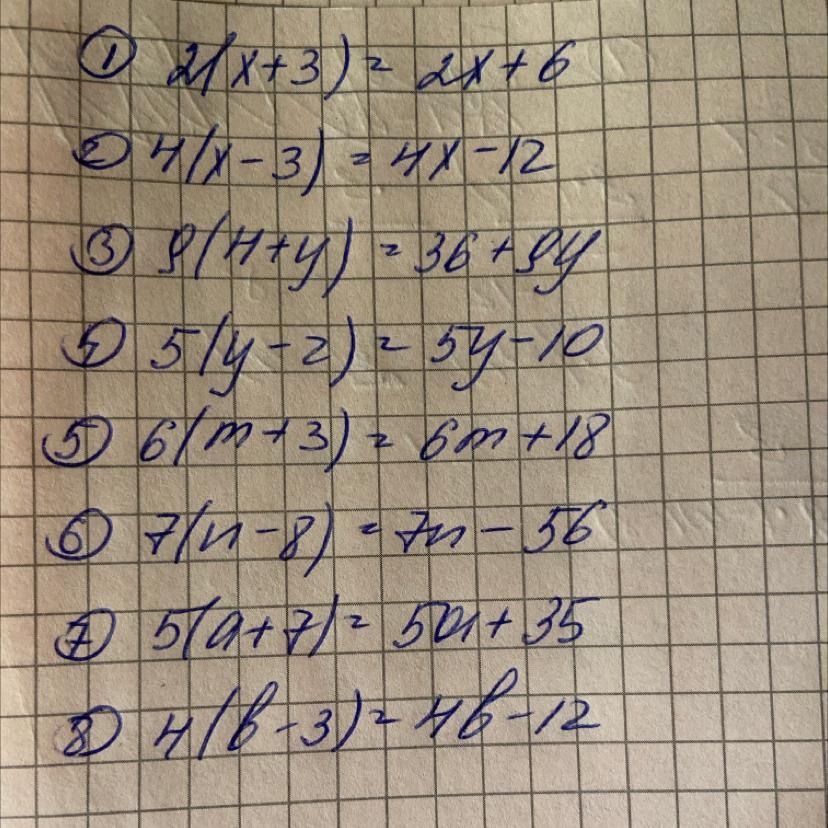 ① 2(x+3) = 2x+6
② 4(x-3) = 4x-12
③ 9(4+y) = 36+9y
④ 5(y-2) = 5y-10
⑤ 6(m+3) = 6m+18
⑥ 7(n-8) = 7n-56
⑦ 5(a+7) = 5a+35
⑧ 4(b-3) = 4b-12